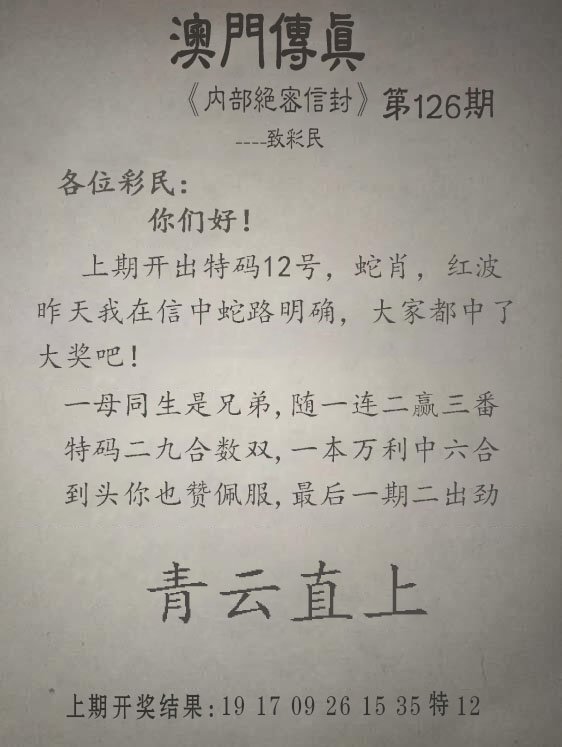 澳門傳眞
《内部絕密信封》第126期
----致彩民
各位彩民：
你们好！
上期开出特码12号，蛇肖，红波
昨天我在信中蛇路明确，大家都中了
大奖吧！
一母同生是兄弟,随一连二赢三番
特码二九合数双,一本万利中六合
到头你也赞佩服,最后一期二出劲
青云直上
上期开奖结果:19 17 09 26 15 35特12